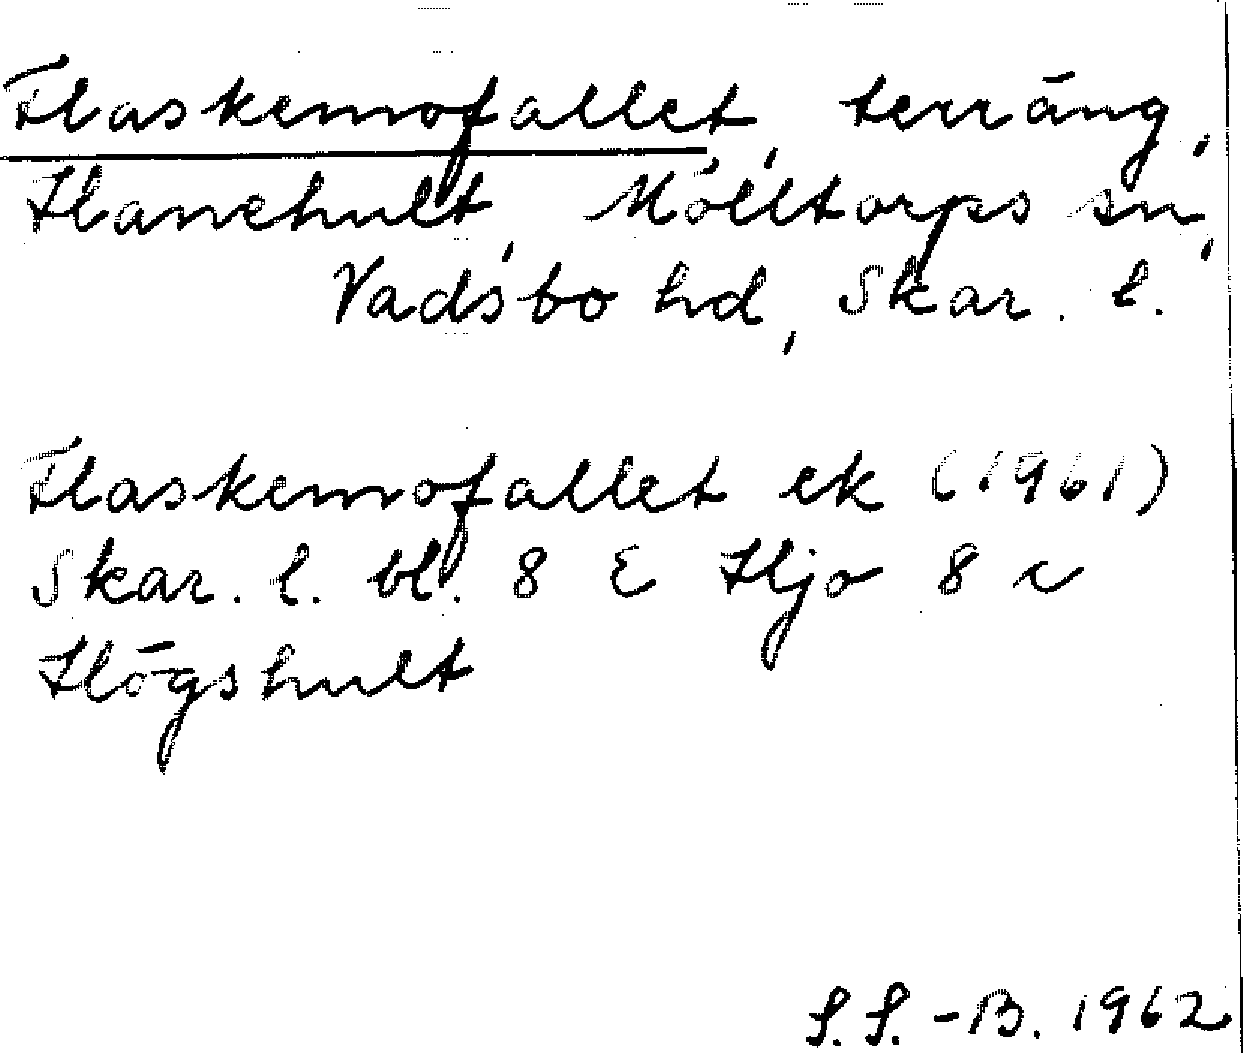 Flaskemofallet, terräng,
Hanehult, Mölltorps sn,
Vadsbo hd, Skar. l.
Flaskemofallet ek (1961)
Skar. l. bl. 8 E Hjo 8 c
Högshult
S. S. - B. 1962